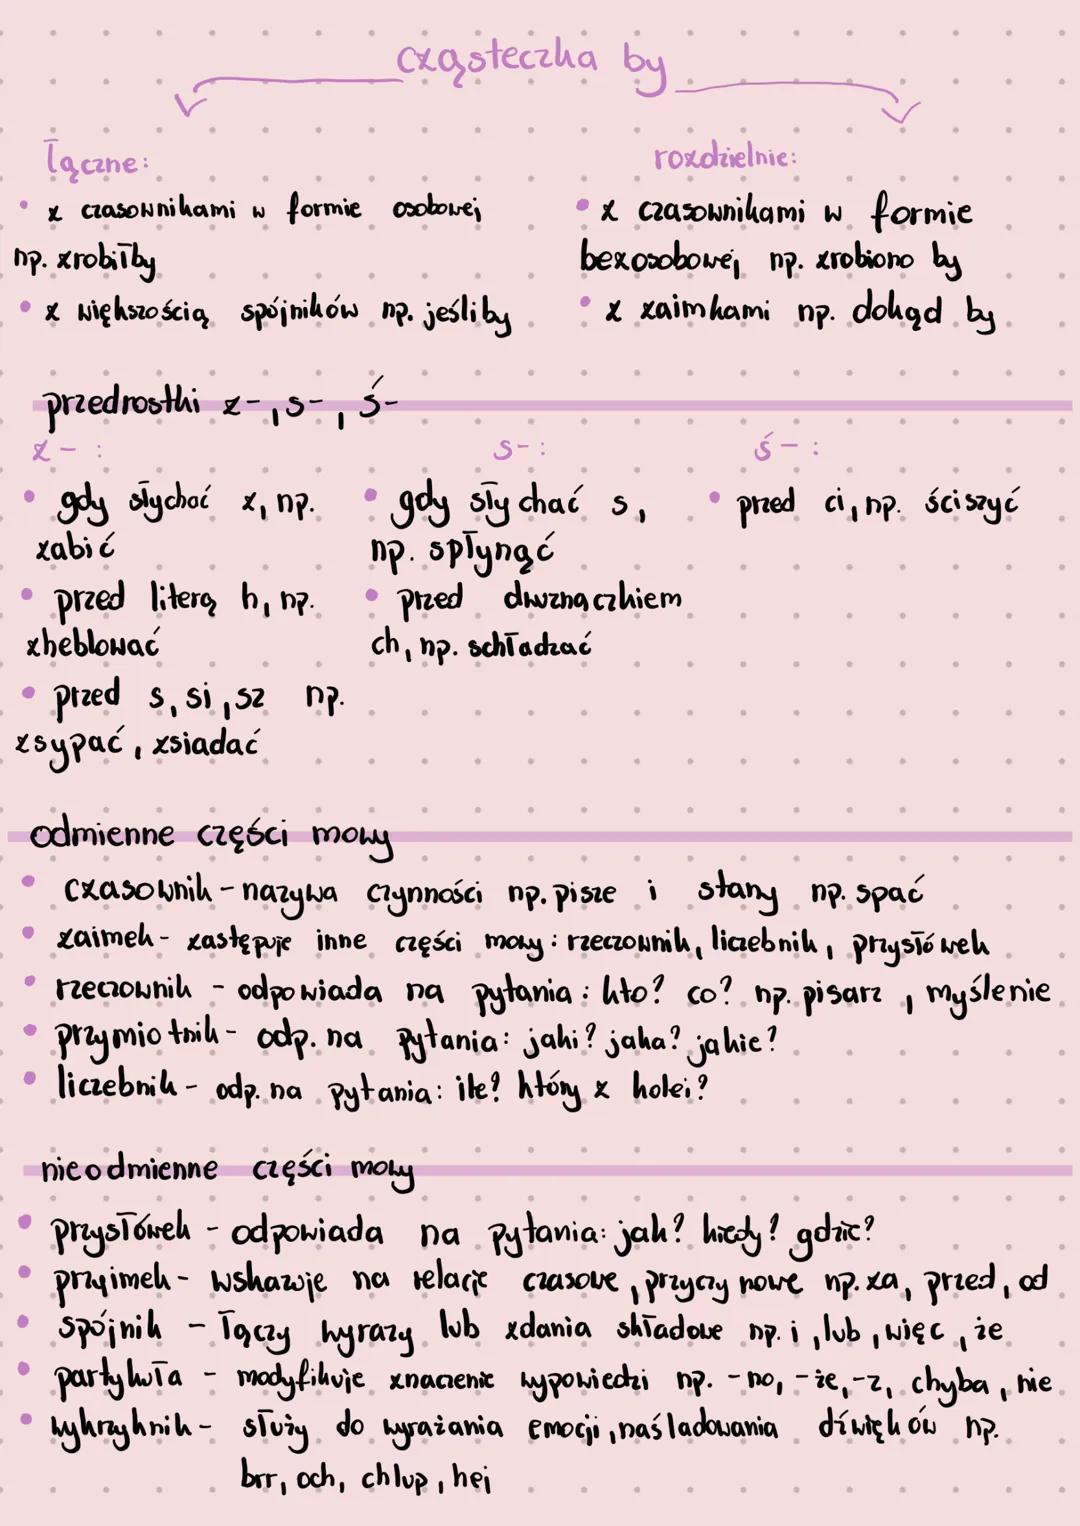 cząsteczka by
łączne:
• z czasownikami w formie osobowej
np. zrobiłby
• z większością spójników np. jeśliby
rozdzielnie:
• z czasownikami w formie
bezosobowej np. zrobiono by
• z zaimkami np. dokąd by
przedrostki z-, s-, ś-
z- :
• gdy słychać z, np.
zabić
• przed literą h, np.
zheblować
• przed s, si, sz np.
zsypać, zsiadać
s- :
• gdy słychać s,
np. spłynąć
• przed dwuznaczkiem
ch, np. schładzać
ś- :
• przed ci, np. ściszyć
odmienne części mowy
• czasownik - nazywa czynności np. pisze i stany np. spać
• zaimek - zastępuje inne części mowy: rzeczownik, liczebnik, przysłówek
• rzeczownik - odpowiada na pytania: kto? co? np. pisarz, myślenie
• przymiotnik - odp. na pytania: jaki? jaka? jakie?
• liczebnik - odp. na pytania: ile? który z kolei?
nieodmienne części mowy
• przysłówek - odpowiada na pytania: jak? kiedy? gdzie?
• przyimek - wskazuje na relacje czasowe, przyczynowe np. za, przed, od
• spójnik - łączy wyrazy lub zdania składowe np. i, lub, więc, że
• partykuła - modyfikuje znaczenie wypowiedzi np. -no, -że, -ż, chyba, nie
• wykrzyknik - służy do wyrażania emocji, naśladowania dźwięków np.
brr, och, chlup, hej